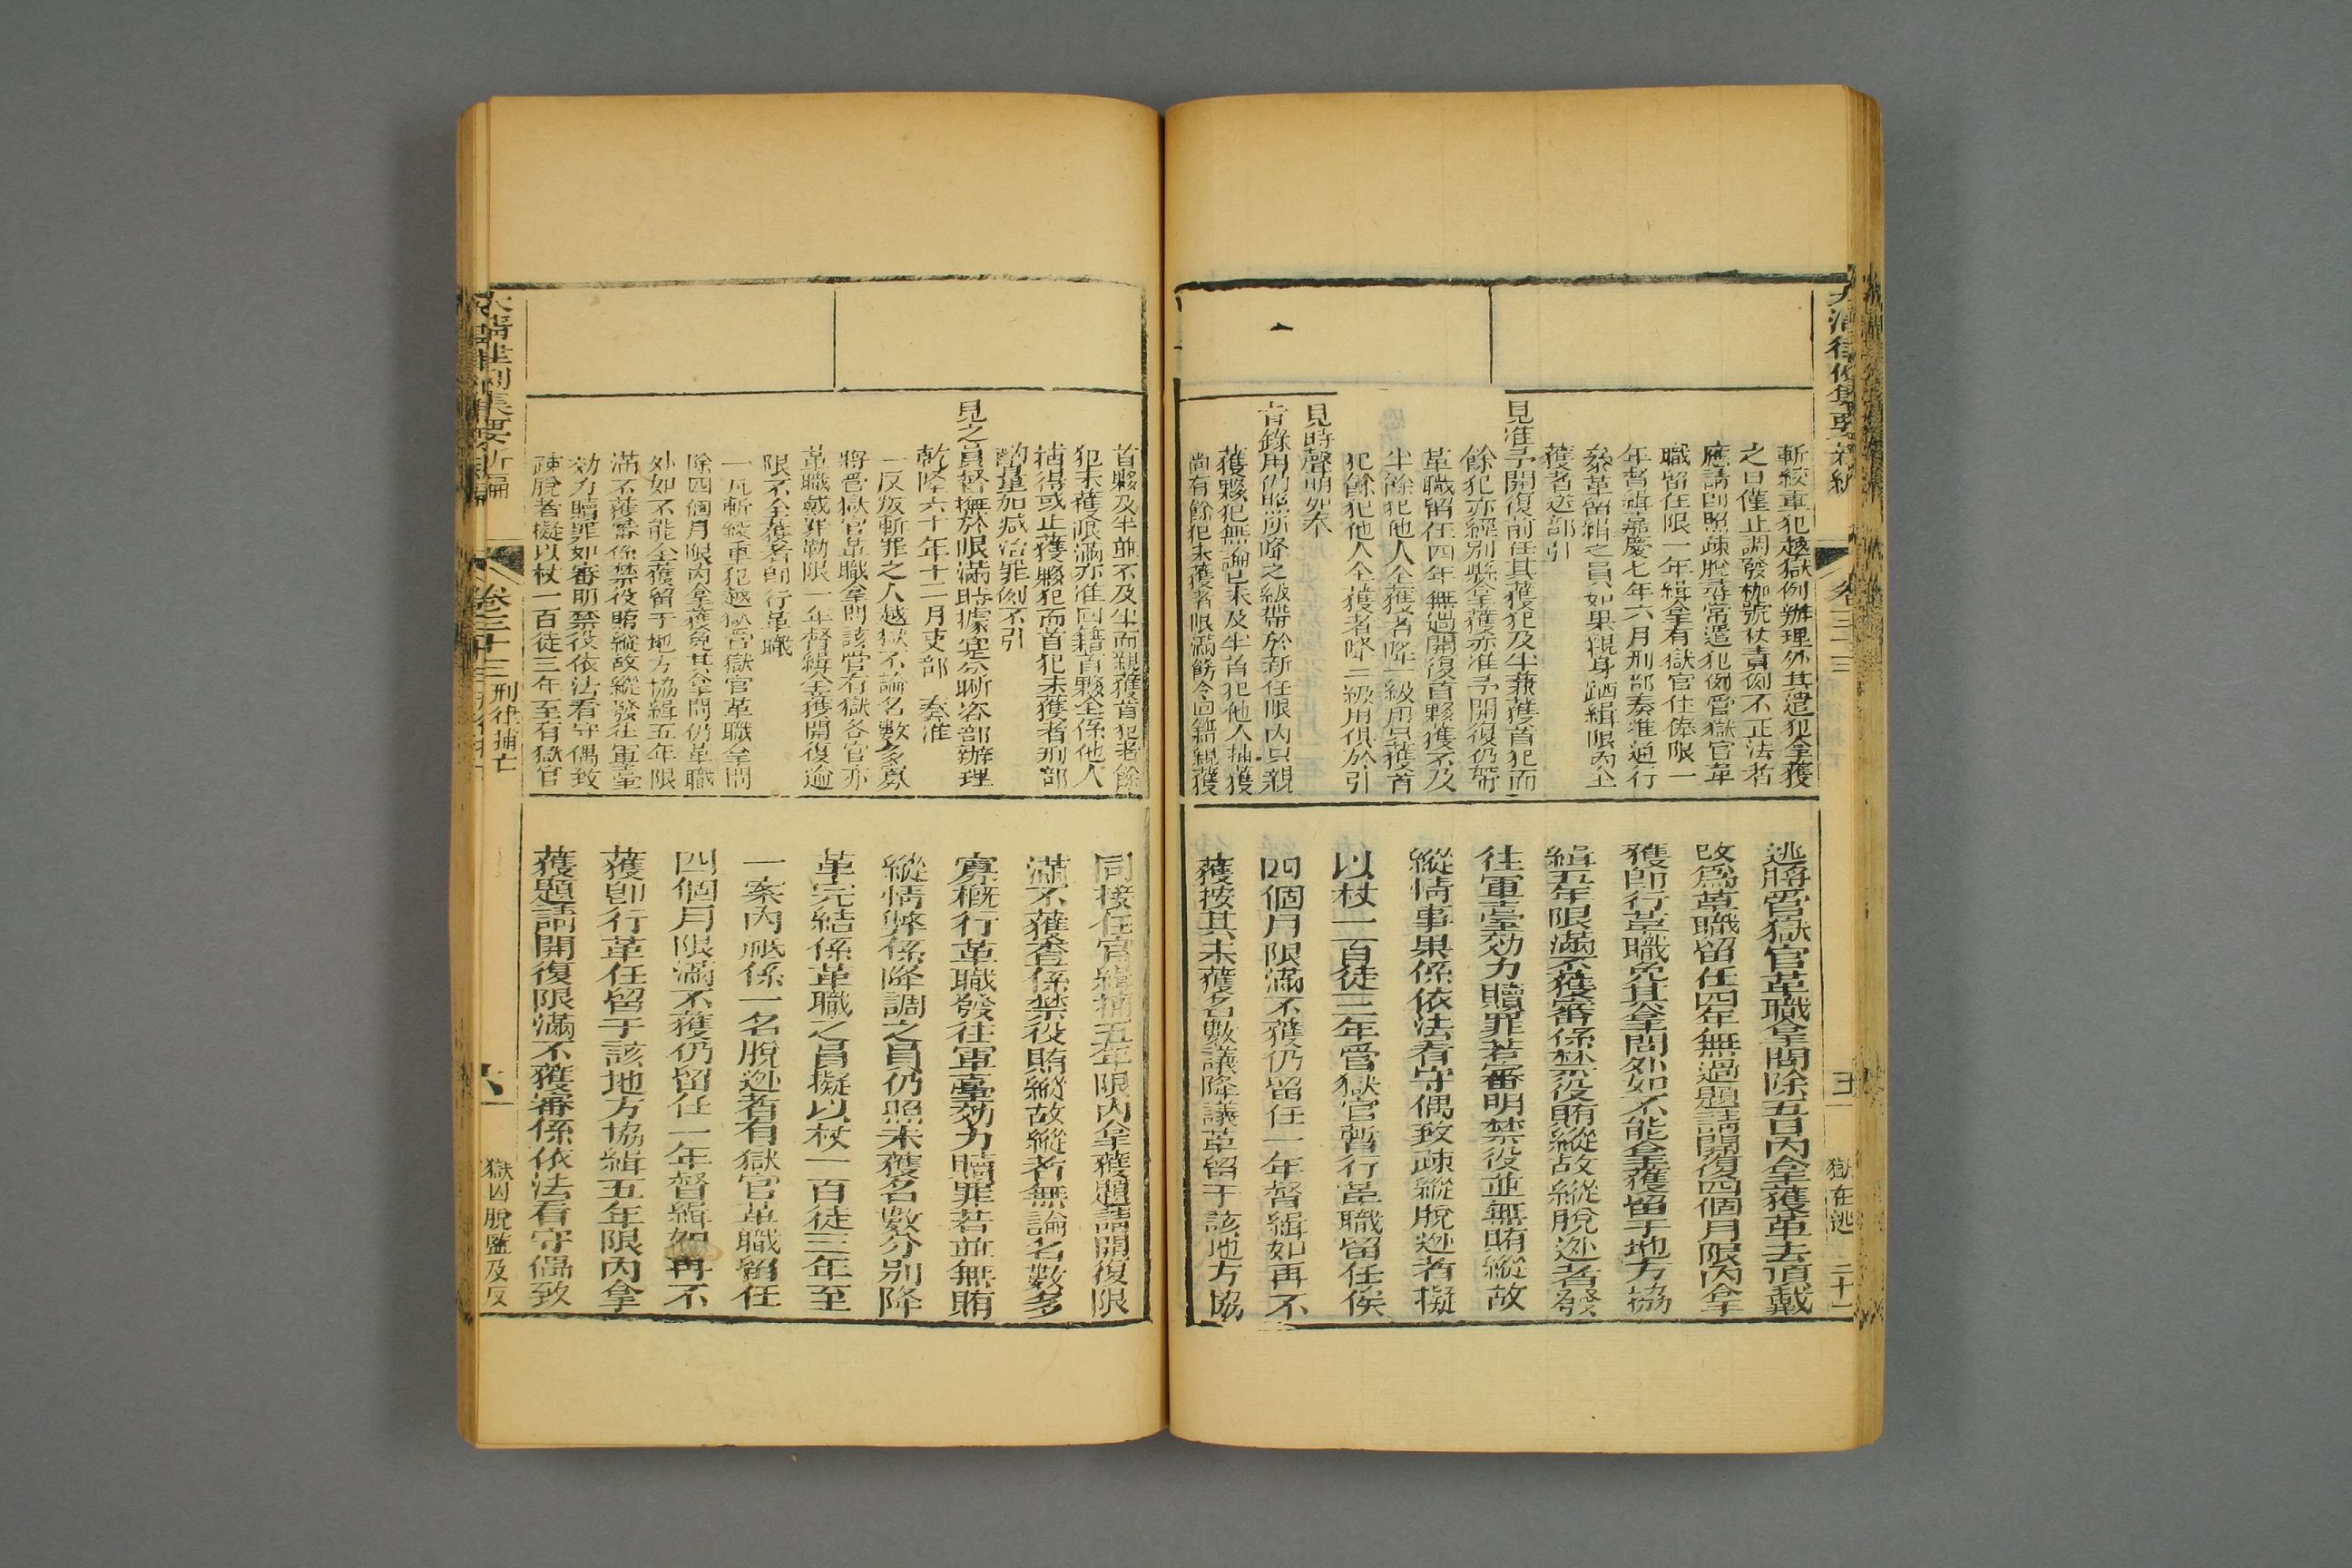 斬絞重犯越獄例辦理外其遣犯拿獲
之日僅止調發枷號杖責例不正法者
應請卽照疎脫尋常遣犯例管獄官革
職留任限一年緝拿有獄官住俸限一
年督緝嘉慶七年六月刑部奏准通行
叅革留緝之員如果親身躧緝限內全
獲者送部引
見准予開復前任其獲犯及半兼獲首犯而
餘犯亦經別縣拿獲亦准予開復仍帶
革職留任四年無過開復首夥獲不及
半餘犯他人全獲者降一級用只獲首
犯餘犯他人全獲者降二級用俱於引
見時聲明如奉
旨錄用仍照所降之級帶於新任限內只親
獲夥犯無論已未及半首犯他人捕獲
尚有餘犯未獲者限滿飭令回籍親獲
逃將管獄官革職拿問除五日內拿獲革去頂戴
改爲革職留任四年無過題請開復四個月限內拿
獲卽行革職免其拿問外如不能拿獲留于地方協
緝五年限滿不獲審係禁役賄縱故縱脫逃者發
往軍臺効力贖罪若審明禁役並無賄縱故
縱情事果係依法看守偶致疎縱脫逃者擬
以杖一百徒三年管獄官暫行革職留任俟
四個月限滿不獲仍留任一年督緝如再不
獲按其未獲名數議降議革留于該地方協
首夥及半並不及半而親獲首犯者餘
犯未獲限滿亦准回籍首夥全係他人
捕得或止獲夥犯而首犯未獲者刑部
酌量加减治罪例不引
見之員督撫於限滿時據寔分晰咨部辦理
乾隆六十年十二月吏部 奏准
一反叛斬罪之人越獄不論名數多寡
將管獄官革職拿問該管有獄各官亦
革職戴罪勒限一年督緝全獲開復逾
限不全獲者卽行革職
一凡斬絞重犯越獄管獄官革職拿問
除四個月限內拿獲免其拿問仍革職
外如不能全獲留于地方協緝五年限
滿不獲審係禁役賄縱故縱發往軍臺
効力贖罪如審明禁役依法看守偶致
疎脫者擬以杖一百徒三年至有獄官
同接任官緝捕五年限內拿獲題請開復限
滿不獲審係禁役賄縱故縱者無論名數多
寡概行革職發往軍臺効力贖罪若並無賄
縱情弊係降調之員仍照未獲名數分別降
革完結係革職之員擬以杖一百徒三年至
一案內祗係一名脫逃者有獄官革職留任
四個月限滿不獲仍留任一年督緝如再不
獲卽行革任留于該地方協緝五年限內拿
獲題請開復限滿不獲審係依法看守偶致
卷三十三
刑律捕亡
獄囚脫監及反
獄在逃
二十一